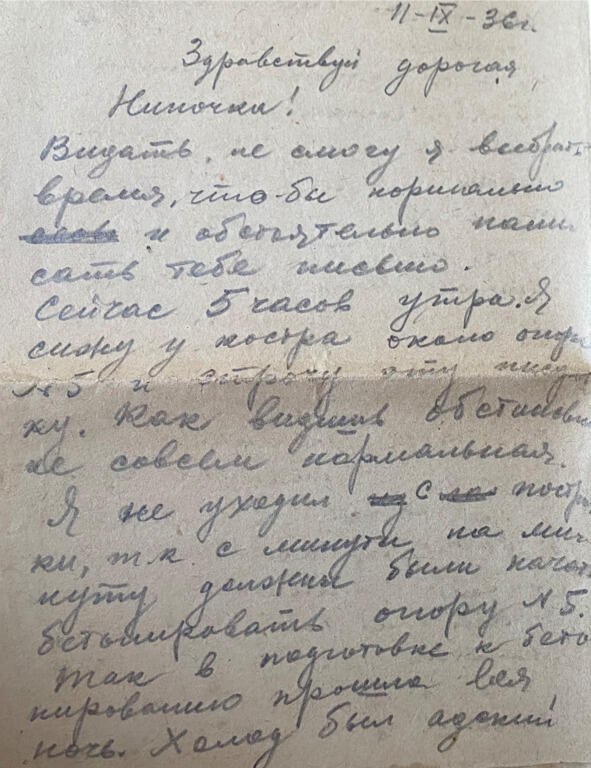 11-IX-36г.
Здравствуй дорогая
Ниночка!
Видать, не смогу я выбрать
время, что-бы нормально
и обстоятельно напи
сать тебе письмо.
Сейчас 5 часов утра. Я
сижу у костра около опоры
№5 и строчу эту пису
ку. Как видишь обстановка
не совсем нормальная.
Я не уходил с построй
ки, т.к с минуты на ми
нуту должны были начать
бетонировать опору №5.
Так в подготовке к бето
нированию прошла вся
ночь. Холод был адский